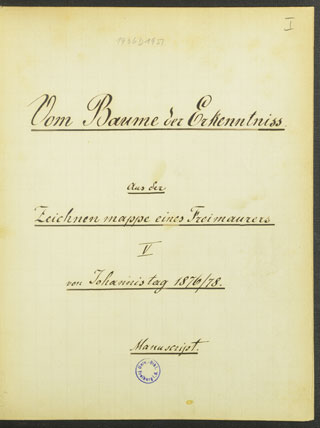 I
Vom Baume der Erkenntniss
Aus der
Zeichnenmappe eines Freimaurers
V
von Johannistag 1876/78.
Manuscript.